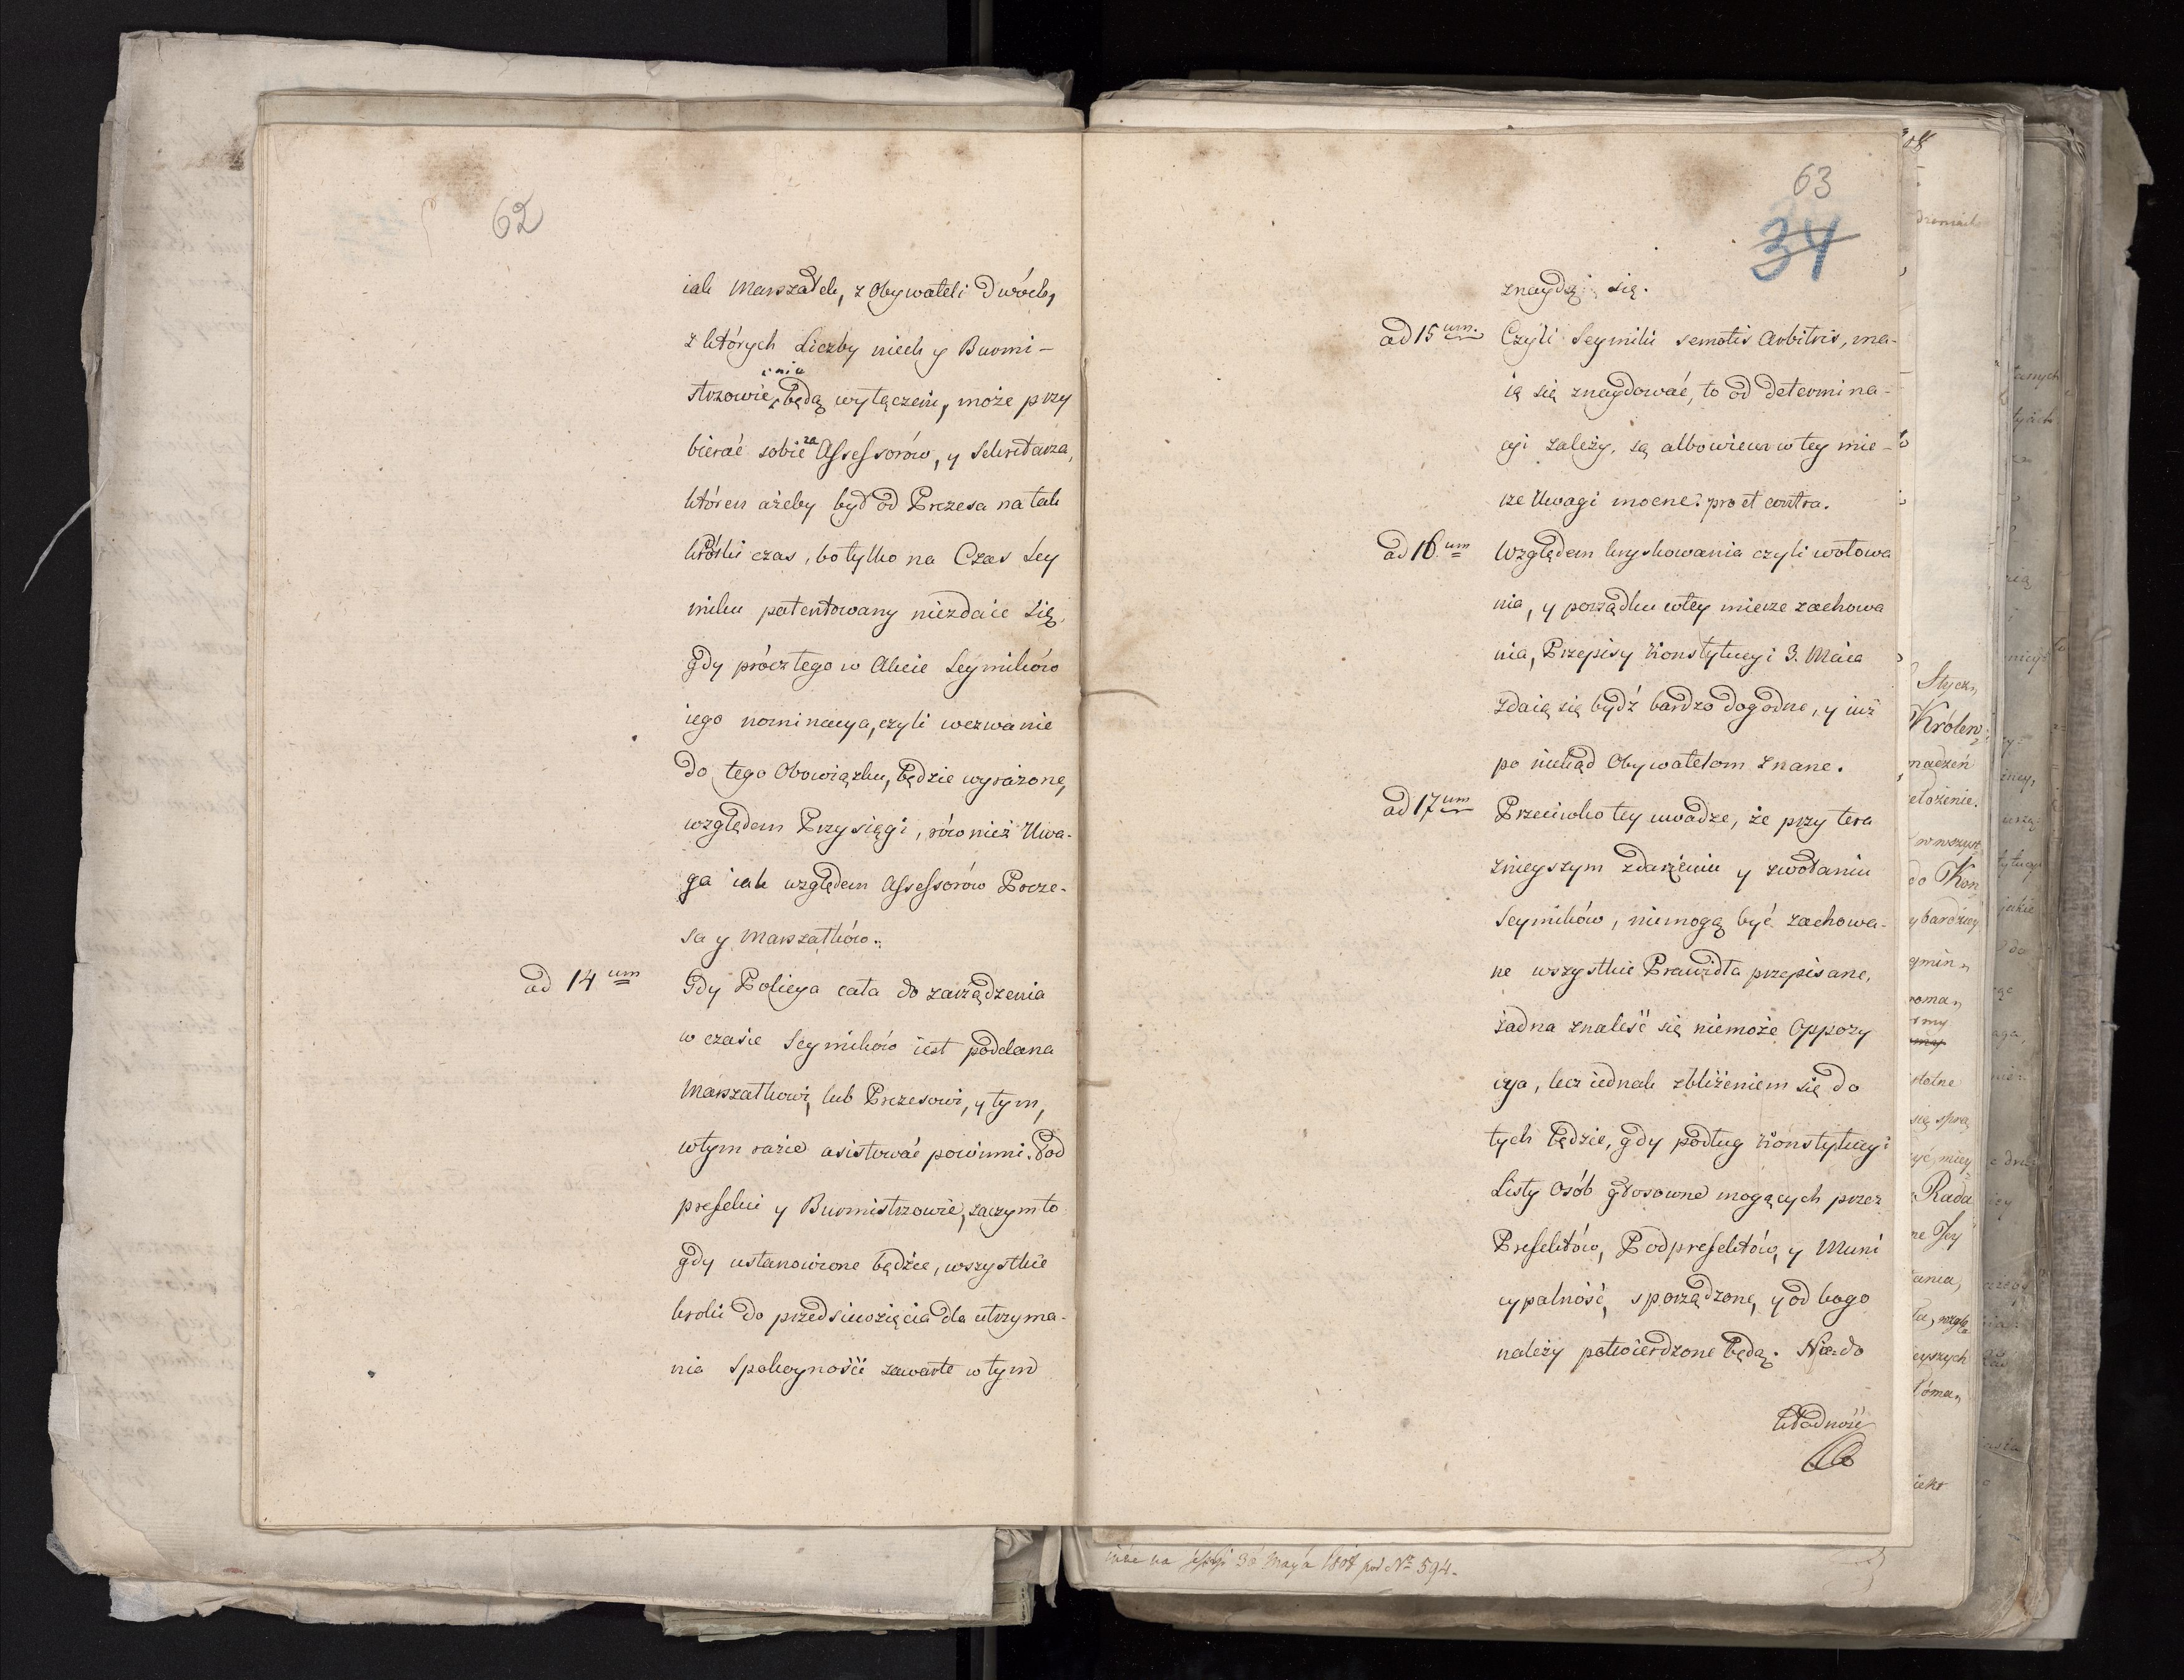 62
iak Marszałek, z Obywateli Dwóch,
z których Liczby niech y Burmi-
strzowie nie będą wyłączeni, może przy
bierać sobie za Assessorów, y Sekretarza,
któren ażeby był od Prezesa na tak
krótki czas, bo tylko na Czas Sey
miku patentowany niezdaie się,
gdy prócz tego w Akcie Seymików
iego nominacya, czyli wezwanie
do tego Obowiązku, będzie wyrażone,
względem Przysięgi, również Uwa-
ga iak względem Assessorów Preze-
sa y Marszałków.
ad 14um Gdy Policya cała do zarządzenia
w czasie Seymików iest poddana
Marszałkowi, lub Prezesowi, y tym,
w tym razie asistować powinni Pod
prefekci y Burmistrzowie, zaczym to
gdy ustanowione będzie, wszystkie
kroki do przedsiewzięcia dla utrzyma-
nia Spokoyności zawarte w tym
63
34
znaydą się.
ad 15um. Czyli Seymiki semotis Arbitris, ma-
ią się znaydować, to od determina-
cyi zależy, są albowiem w tey mie-
rze Uwagi mocne: pro et contra.
ad 16um Względem kryskowania czyli wotowa
nia, y porządku w tey mierze zachowa
nia, Przepisy Konstytucyi 3. Maia
zdaią się bydź bardzo dogodne, y iuż
po niekąd Obywatelom znane.
ad 17um Przeciwko tey uwadze, że przy tera
znieyszym zdarzeniu y zwołaniu
Seymików, niemogą być zachowa-
ne wszystkie Prawidła przepisane,
żadna znaleść się niemoże Oppozy
cya, lecz iednak zbliżeniem się do
tych będzie, gdy podług Konstytucyi
Listy Osób głosowne mogących przez
Prefektów, Podprefektów, y Muni
cypalność, sporządzone, y od kogo
należy potwierdzone będą. Nie=do
kładność
inne na Sessyi 30 Maya 1808 pod Nr 594.